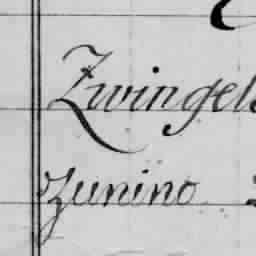 Zwingel
Zunino